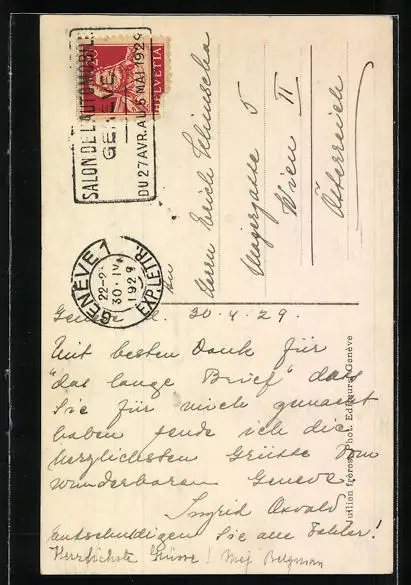 SALON DE L'AUTOMOBILE
GENÈVE
DU 27 AVR. AU 5 MAI 1929
HELVETIA
GENÈVE 1
22-2
30.IV.
1929
EXP. LETTR.
An
Herrn Erich
5
Wien II
Österreich
Genève 30.4.29.
Mit besten Dank für
"das lange Brief" dass
Sie für mich gemacht
haben sende ich die
herzlichsten Grüsse vom
wunderbaren Geneve
Ingrid Osvald
Entschuldigen Sie alle Fehler!
Herrlichste Grüsse! Bergman
Jullien frères, Phot. Editeurs, Genève